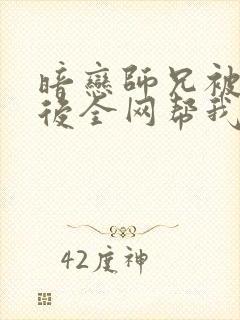 暗戀師兄被
後全网帮我
42度神